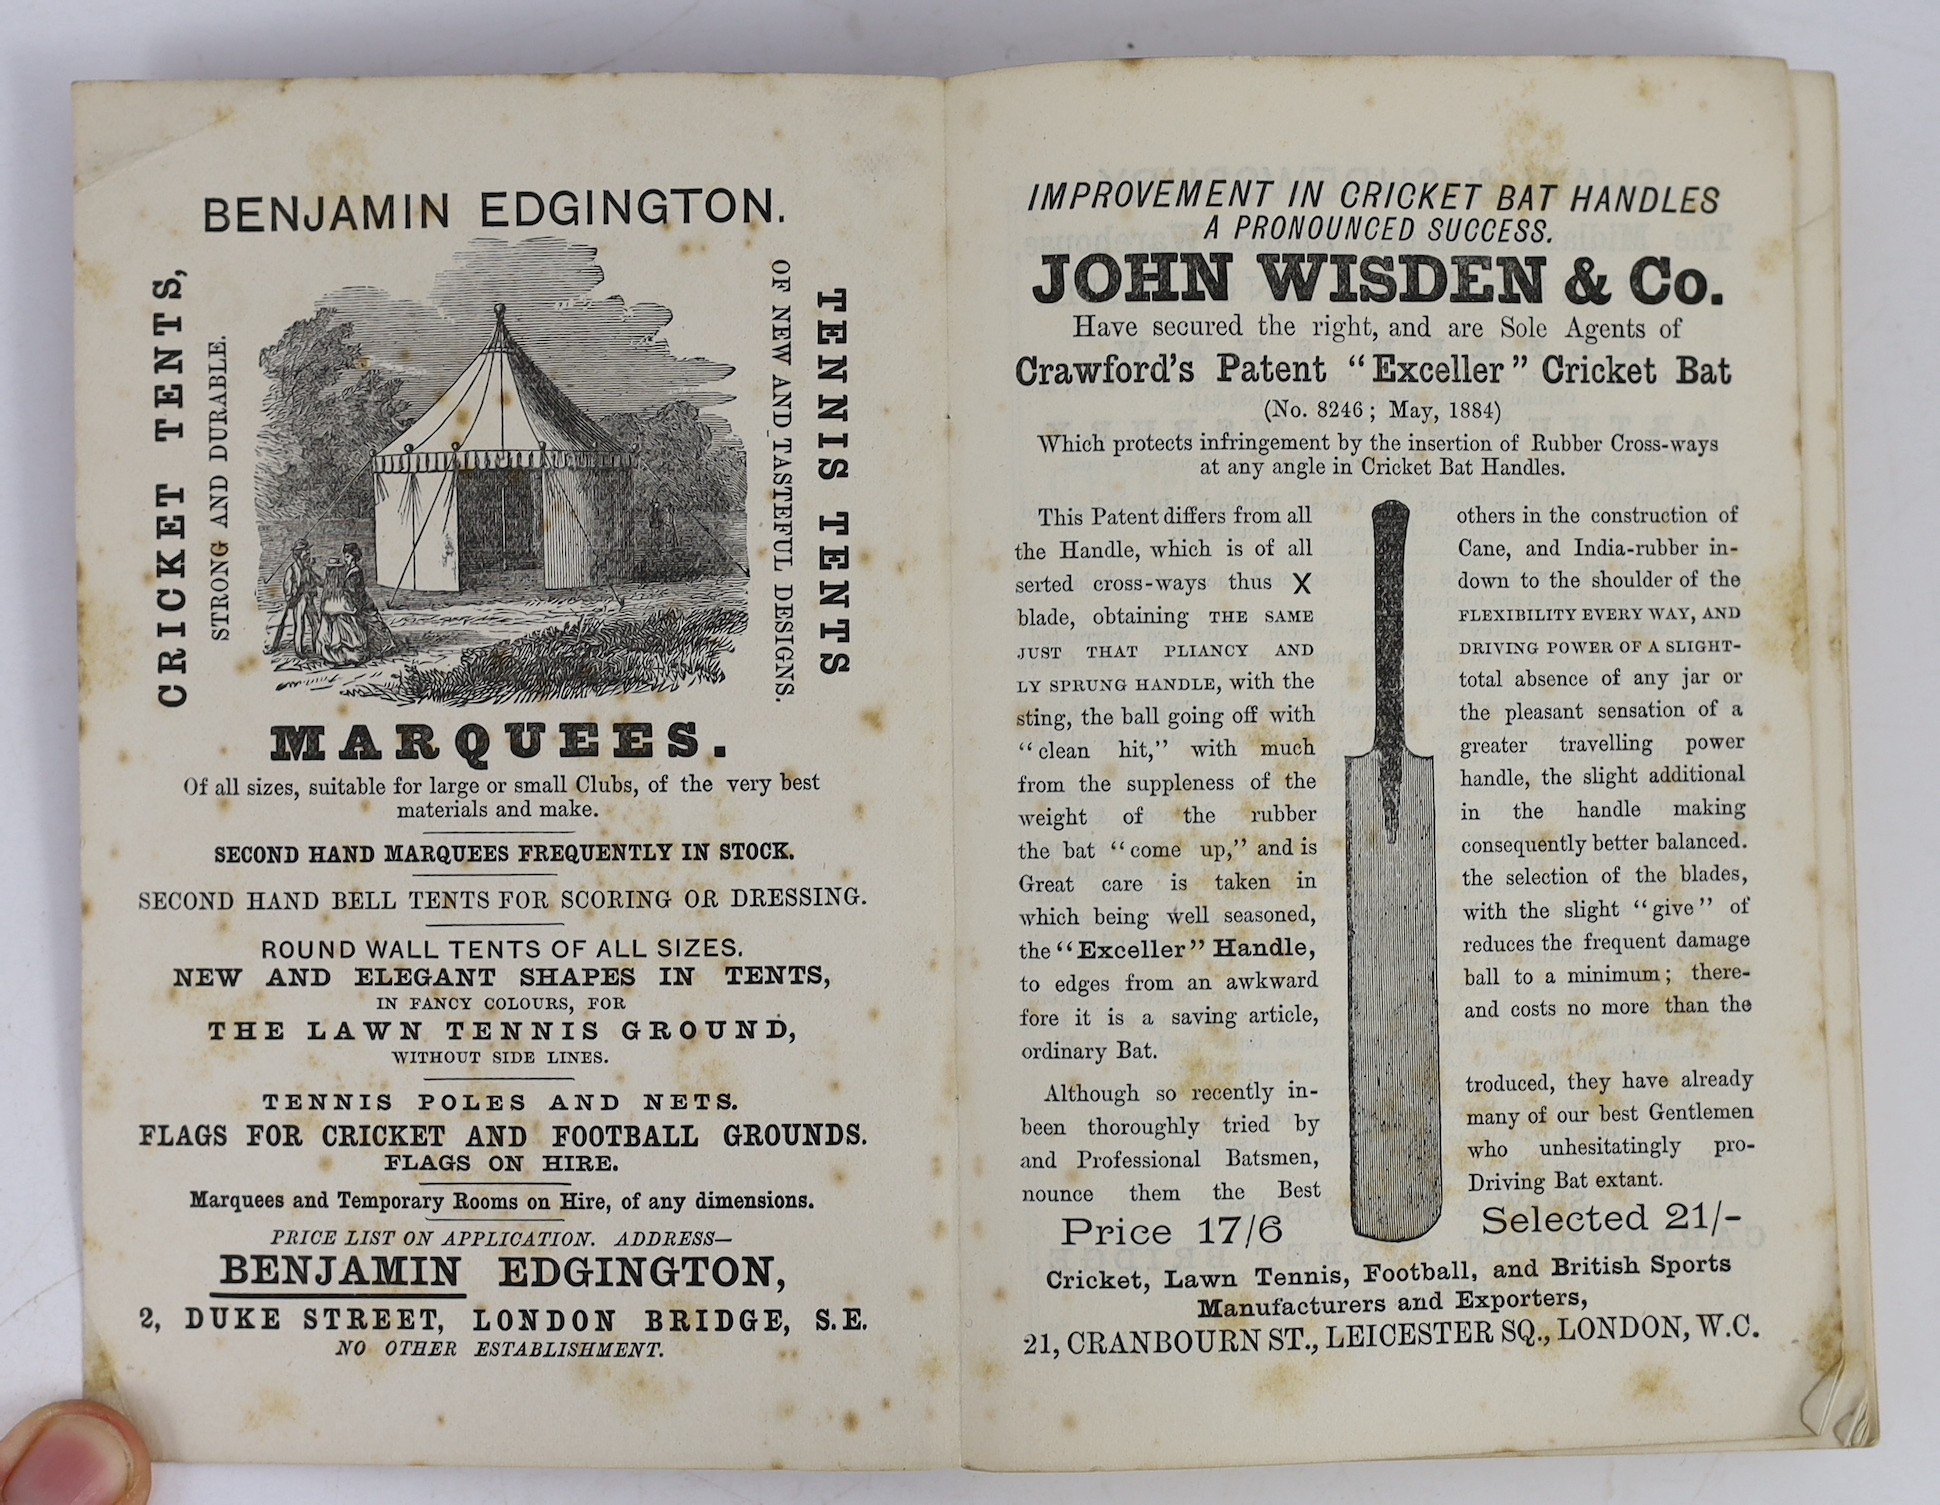 BENJAMIN EDGINGTON.
CRICKET TENTS,
STRONG AND DURABLE.
OF NEW AND TASTEFUL DESIGNS.
TENNIS TENTS
MARQUEES.
Of all sizes, suitable for large or small Clubs, of the very best
materials and make.
SECOND HAND MARQUEES FREQUENTLY IN STOCK.
SECOND HAND BELL TENTS FOR SCORING OR DRESSING.
ROUND WALL TENTS OF ALL SIZES.
NEW AND ELEGANT SHAPES IN TENTS,
IN FANCY COLOURS, FOR
THE LAWN TENNIS GROUND,
WITHOUT SIDE LINES.
TENNIS POLES AND NETS.
FLAGS FOR CRICKET AND FOOTBALL GROUNDS.
FLAGS ON HIRE.
Marquees and Temporary Rooms on Hire, of any dimensions.
PRICE LIST ON APPLICATION. ADDRESS—
BENJAMIN EDGINGTON,
2, DUKE STREET, LONDON BRIDGE, S.E.
NO OTHER ESTABLISHMENT.
IMPROVEMENT IN CRICKET BAT HANDLES
A PRONOUNCED SUCCESS.
JOHN WISDEN & Co.
Have secured the right, and are Sole Agents of
Crawford's Patent "Exceller" Cricket Bat
(No. 8246; May, 1884)
Which protects infringement by the insertion of Rubber Cross-ways
at any angle in Cricket Bat Handles.
This Patent differs from all others in the construction of
the Handle, which is of all Cane, and India-rubber in-
serted cross-ways thus X down to the shoulder of the
blade, obtaining THE SAME FLEXIBILITY EVERY WAY, AND
JUST THAT PLIANCY AND DRIVING POWER OF A SLIGHT-
LY SPRUNG HANDLE, with the total absence of any jar or
sting, the ball going off with the pleasant sensation of a
"clean hit," with much greater travelling power
from the suppleness of the handle, the slight additional
weight of the rubber in the handle making
the bat "come up," and is consequently better balanced.
Great care is taken in the selection of the blades,
which being well seasoned, with the slight "give" of
the "Exceller" Handle, reduces the frequent damage
to edges from an awkward ball to a minimum; there-
fore it is a saving article, and costs no more than the
ordinary Bat.
Although so recently in- troduced, they have already
been thoroughly tried by many of our best Gentlemen
and Professional Batsmen, who unhesitatingly pro-
nounce them the Best Driving Bat extant.
Price 17/6 Selected 21/-
Cricket, Lawn Tennis, Football, and British Sports
Manufacturers and Exporters,
21, CRANBOURN ST., LEICESTER SQ., LONDON, W.C.